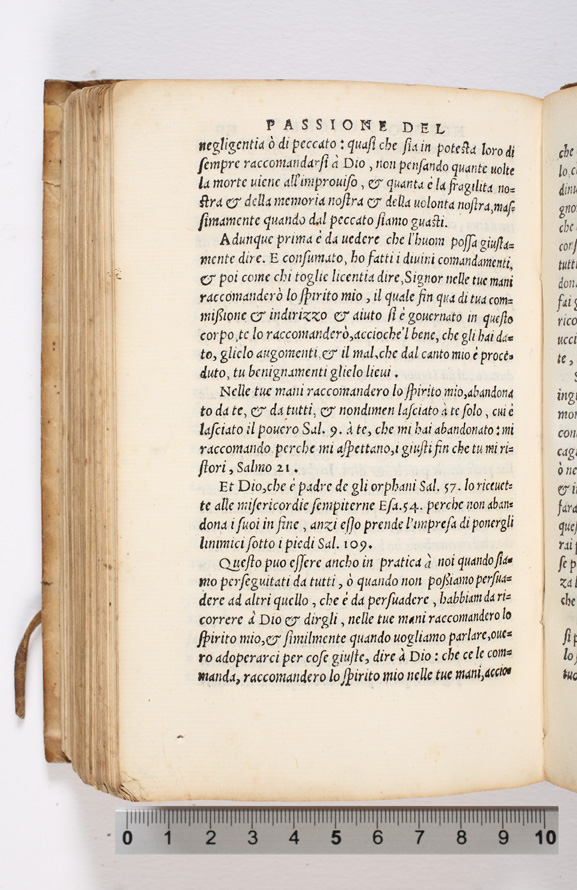 PASSIONE DEL
negligentia ò di peccato : quaſi che ſia in poteſta loro di
ſempre raccomandarſi à Dio , non penſando quante uolte
la morte uiene all'improuiſo, & quanta è la fragilita no-
ſtra & della memoria noſtra & della uolonta noſtra,maſ-
ſimamente quando dal peccato ſiamo guaſti.
Adunque prima è da uedere che l'huom poſſa giuſta-
mente dire. E conſumato, ho fatti i diuini comandamenti,
& poi come chi toglie licentia dire,Signor nelle tue mani
raccomanderò lo ſpirito mio , il quale fin qua di tua com-
miſſione & indirizzo & aiuto ſi è gouernato in queſto
corpo,te lo raccomanderò,accioche'l bene, che gli hai da-
to, glielo augomenti,& il mal,che dal canto mio è proce-
duto, tu benignamenti glielo lieui .
Nelle tue mani raccomandero lo ſpirito mio,abandona
to da te, & da tutti, & nondimen laſciato à te ſolo , cui è
laſciato il pouero Sal. 9. à te, che mi hai abandonato : mi
raccomando perche mi aſpettano,i giuſti fin che tu mi ri-
ſtori , Salmo 21 .
Et Dio,che è padre de gli orphani Sal. 57. lo riceuet-
te alle miſericordie ſempiterne Eſa.54. perche non aban-
dona i ſuoi in fine , anzi eſſo prende l'impreſa di ponergli
l'inimici ſotto i piedi Sal. 109.
Queſto puo eſſere ancho in pratica à noi quando ſia-
mo perſeguitati da tutti , ò quando non poſſiamo perſua-
dere ad altri quello , che è da perſuadere , habbiam da ri-
correre à Dio & dirgli , nelle tue mani raccomandero lo
ſpirito mio,& ſimilmente quando uogliamo parlare,oue-
ro adoperarci per coſe giuſte, dire à Dio : che ce le com-
manda, raccomandero lo ſpirito mio nelle tue mani,accio-
0 1 2 3 4 5 6 7 8 9 10